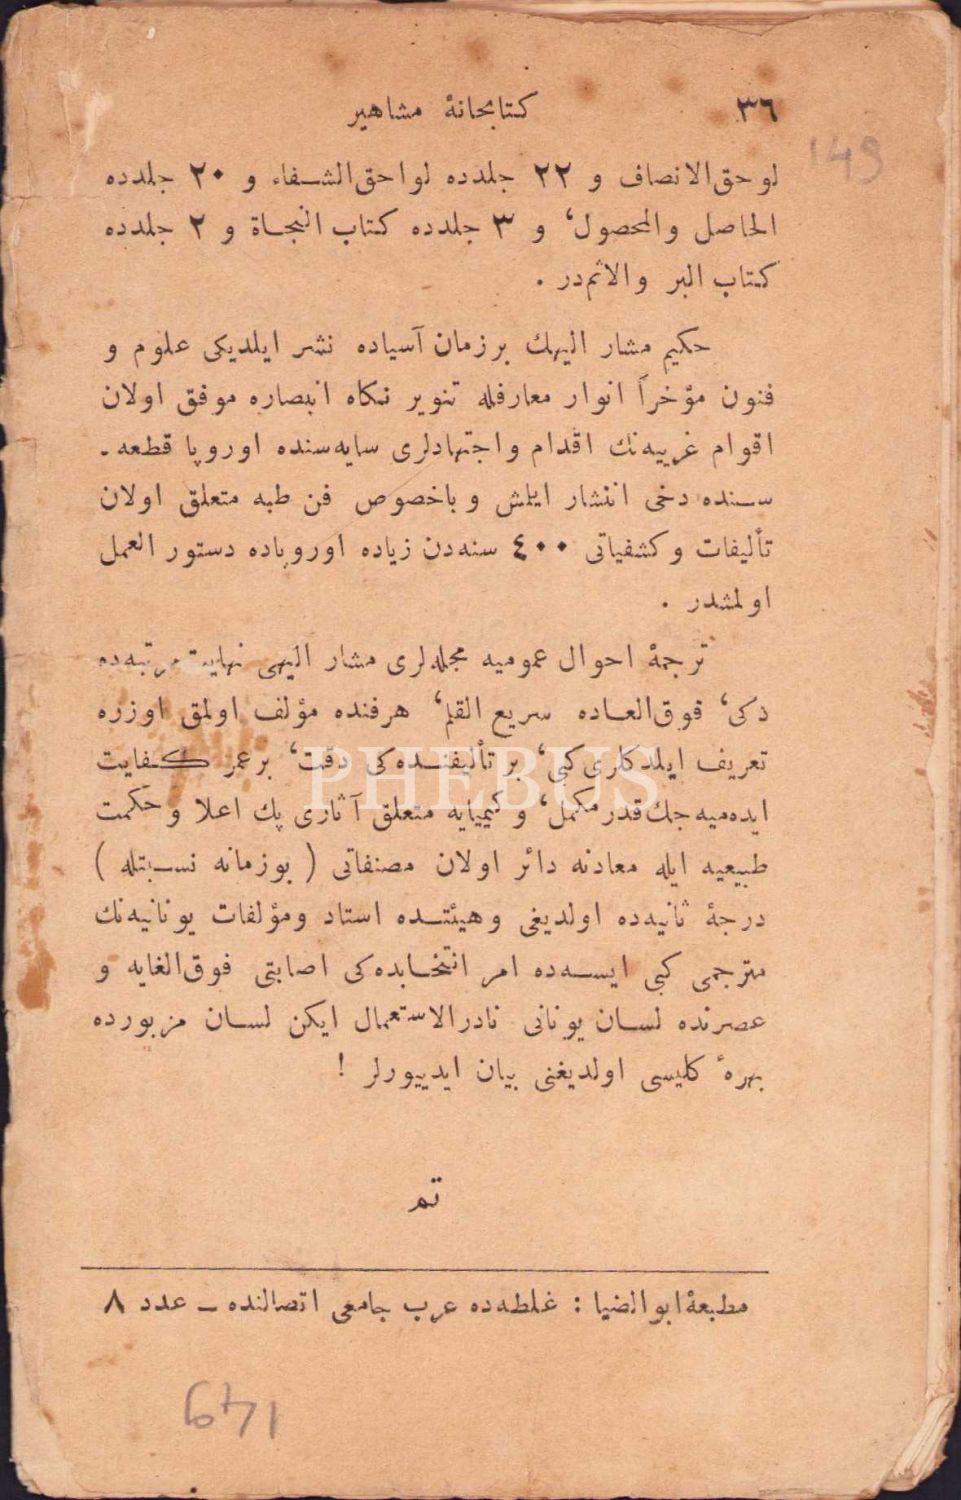 ٣٦
كتابخانهٔ مشاهير
149
لوحق‌الانصاف و ٢٢ جلدده لواحق‌الشفاء و ٢٠ جلدده
الحاصل والمحصول، و ٣ جلدده كتاب النجاة و ٢ جلدده
كتاب البر والاثم‌در .
حكيم مشار اليهك برزمان آسياده نشر ايلديكى علوم و
فنون مؤخراً انوار معارفله تنوير نكاه ابصاره موفق اولان
اقوام غربيه‌نك اقدام واجتهادلرى سايه‌سنده اوروپا قطعه ـ
سنده دخى انتشار ايتمش و باخصوص فن طبه متعلق اولان
تأليفات وكشفياتى ٤٠٠ سنه‌دن زياده اوروپاده دستور العمل
اولمشدر .
ترجمهٔ احوال عموميه مجله‌لرى مشار اليهى نهايت مرتبه‌ده
ذكى، فوق‌العاده سريع القلم، هرفنده مؤلف اولمق اوزره
تعريف ايلدكلرى كبى، بر تأليفنده‌كى دقت، برعمر كفايت
ايده‌ميه‌جك‌قدر مكمل، وكيميايه متعلق آثارى پك اعلا وحكمت
طبيعيه ايله معادنه دائر اولان مصنفاتى ( بوزمانه نسبتله )
درجهٔ ثانيه‌ده اولديغى وهيئتده استاد ومؤلفات يونانيه‌نك
مترجمى كبى ايسه‌ده امر انتخابده‌كى اصابتى فوق‌الغايه و
عصرنده لسان يونانى نادرالاستعمال ايكن لسان مزبورده
بهرهٔ كليسى اولديغنى بيان ايدييورلر !
تم
مطبعهٔ ابوالضيا : غلطه‌ده عرب جامعى اتصالنده ـ عدد ٨
149
PHEBUS